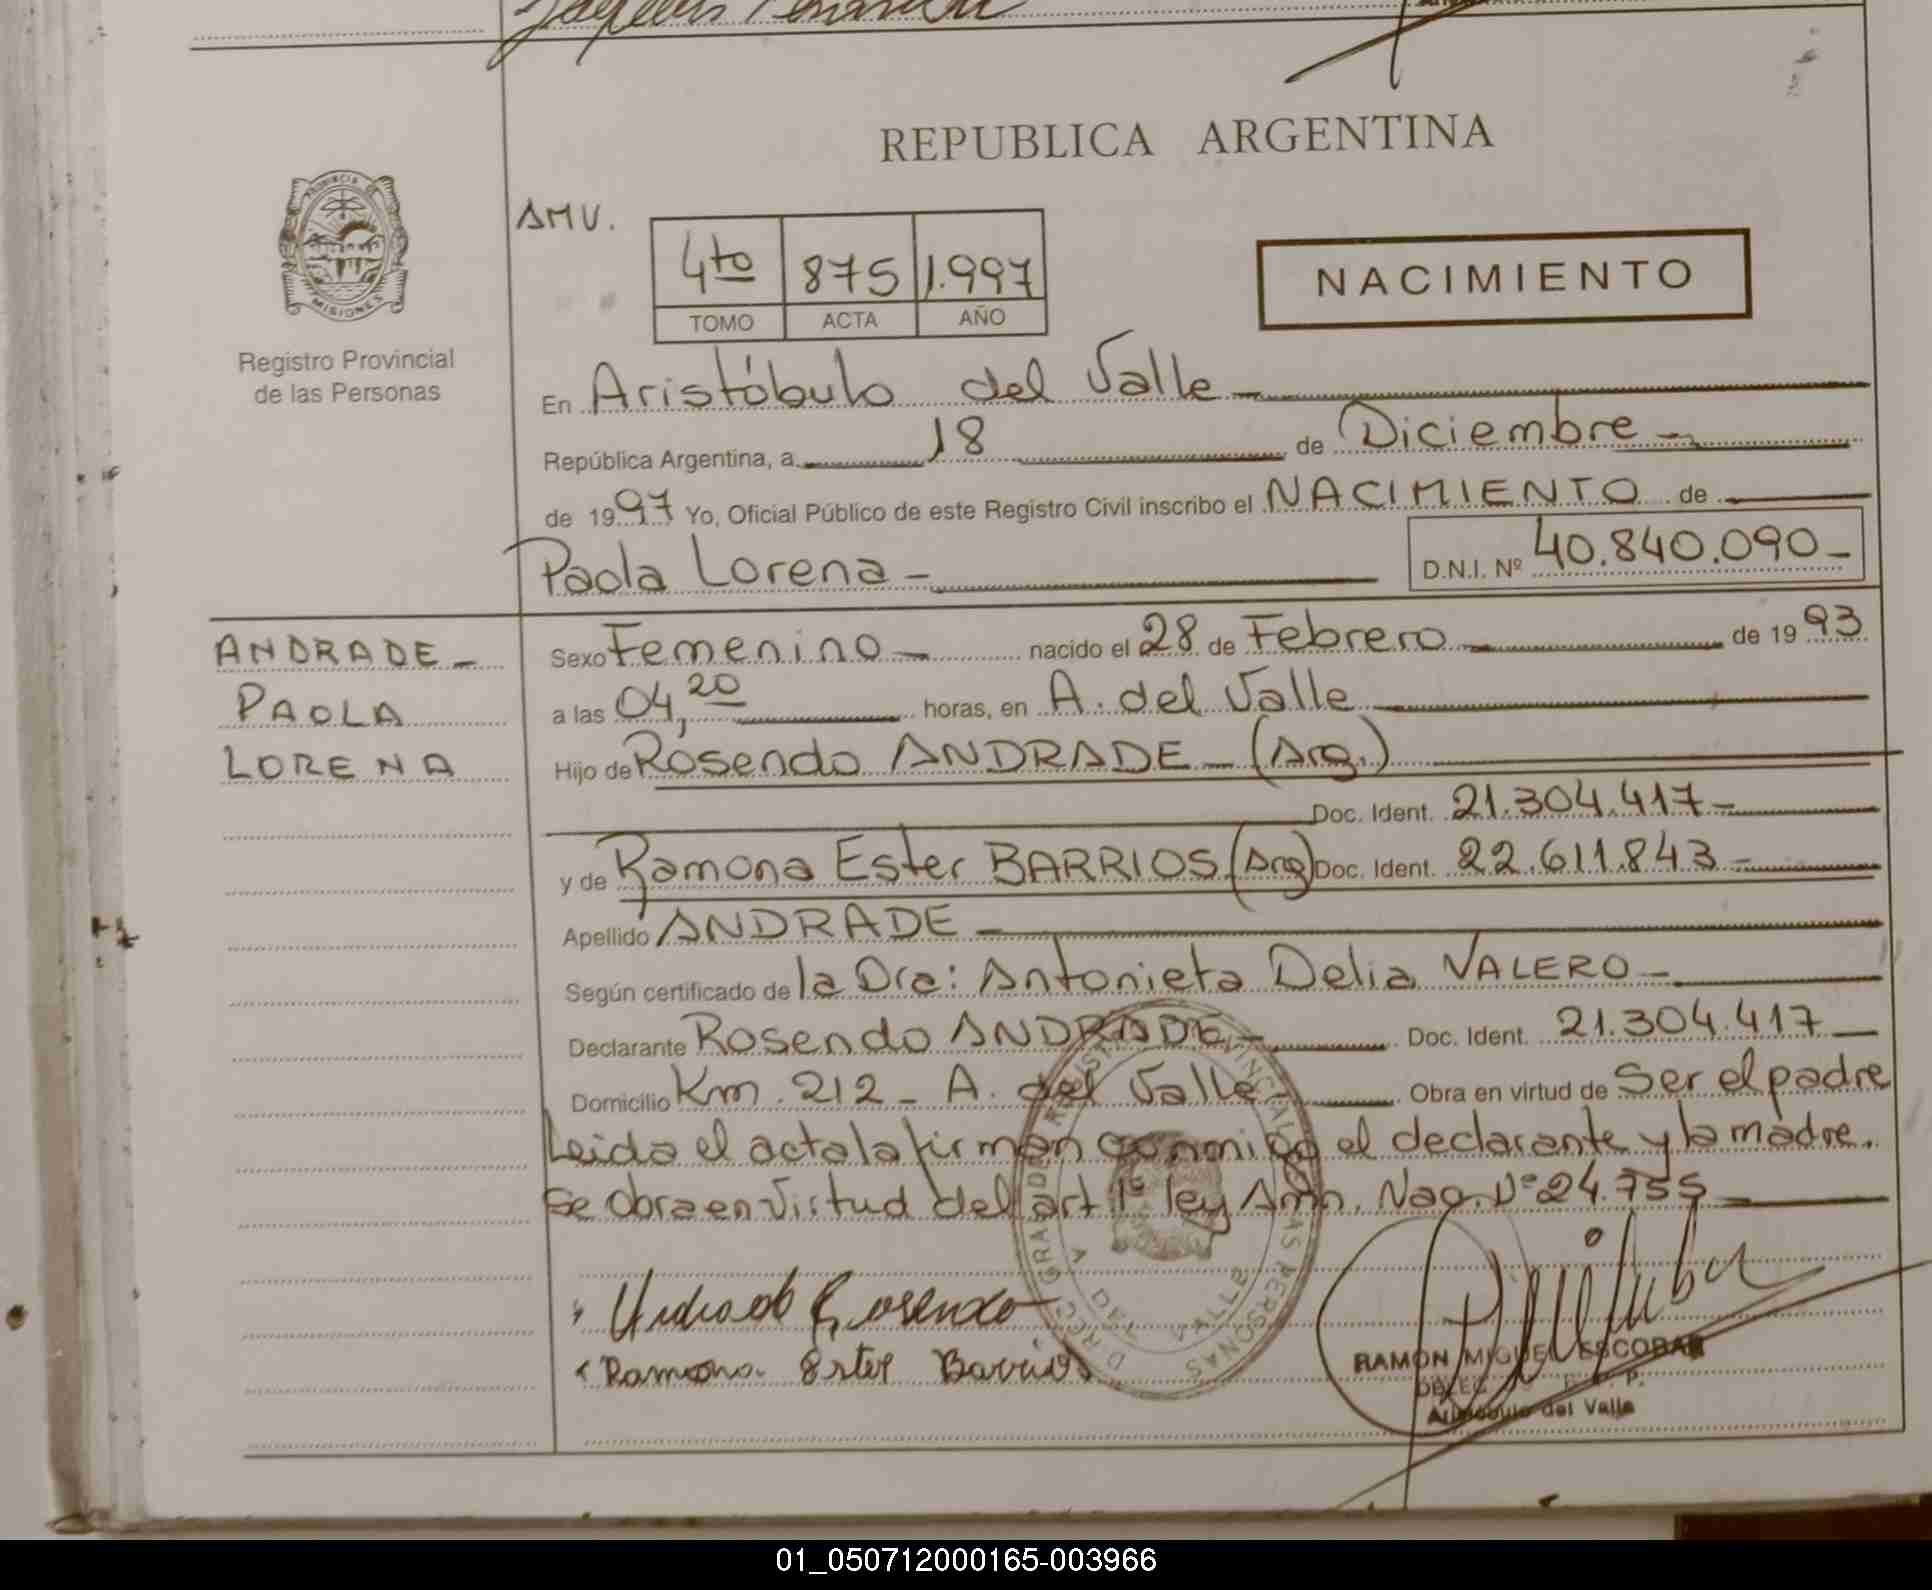 REPUBLICA ARGENTINA
PROVINCIA DE
MISIONES
Registro Provincial
de las Personas
AMV.
4to 875 1.997
TOMO ACTA AÑO
NACIMIENTO
En Aristóbulo del Valle
República Argentina, a 18 de Diciembre
de 1997 Yo, Oficial Público de este Registro Civil inscribo el NACIMIENTO de
Paola Lorena D.N.I. Nº 40.840.090
ANDRADE
PAOLA
LORENA
Sexo Femenino nacido el 28 de Febrero de 1993
a las 04,20 horas, en A. del Valle
Hijo de Rosendo ANDRADE (Arg.)
Doc. Ident. 21.304.417
y de Ramona Ester BARRIOS (Arg) Doc. Ident. 22.611.843
Apellido ANDRADE
Según certificado de la Dra: Antonieta Delia VALERO
Declarante Rosendo ANDRADE Doc. Ident. 21.304.417
Domicilio Km. 212 - A. del Valle Obra en virtud de Ser el padre
Leida el acta la firman conmigo el declarante y la madre.
Se obra en virtud del art 1º ley Amn. Nac. Nº 24.755
Rosendo
Ramona Ester Barrios
RAMON MIGUEL ESCOBAR
Aristóbulo del Valle
01_050712000165-003966